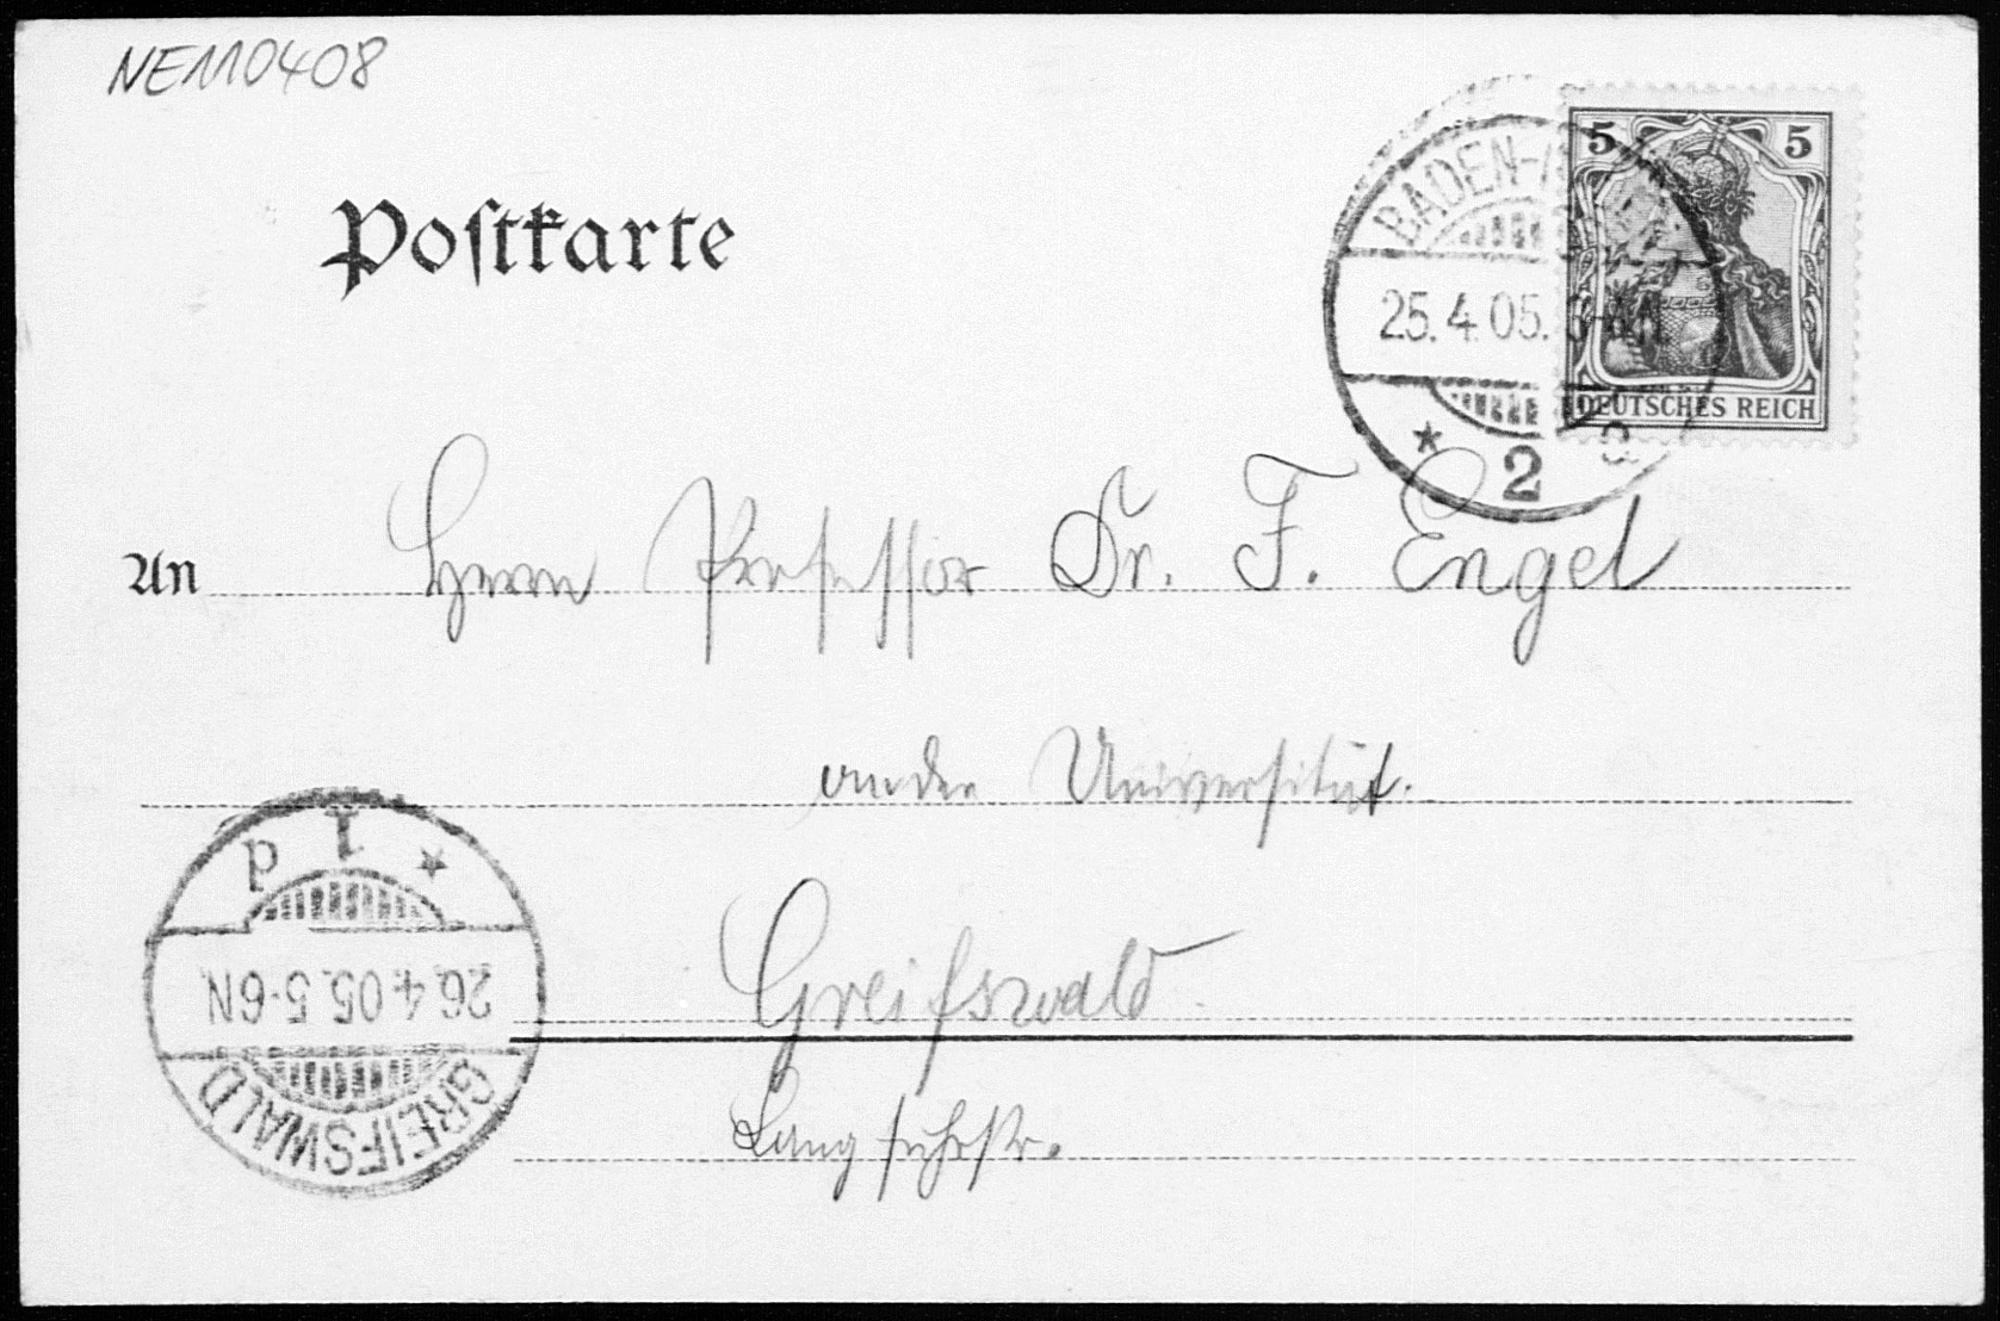 NE110408
Postkarte
5 5
BADEN-
25. 4. 05.
DEUTSCHES REICH
* 2
An Herrn Professor Dr. F. Engel
an der Universität.
Greifswald
Langfuhrstr.
* 1 d
26.4.05. 5-6N
GREIFSWALD